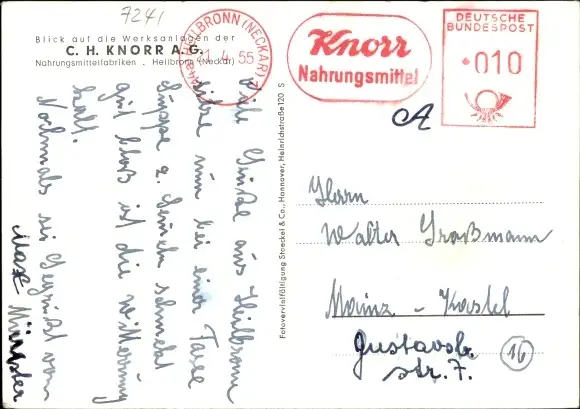 7241
Blick auf die Werksanlagen der
C. H. KNORR A.G.
Nahrungsmittelfabriken . Heilbronn (Neckar)
HEILBRONN (NECKAR)
1. 4. 55
Knorr
Nahrungsmittel
DEUTSCHE
BUNDESPOST
010
Viele Grüße aus Heilbronn
sitze nun bei einer Tasse
Suppe u. schmeckt
gut bloß ist die Witterung
kalt.
Nochmals sei Gegrüßt von
Max Münster
Fotovervielfältigung Stoeckel & Co., Hannover, Heinrichstraße 120 S
Herrn
Walter Graßmann
Mainz - Kastel
Gustavsb.
str. 7.
16